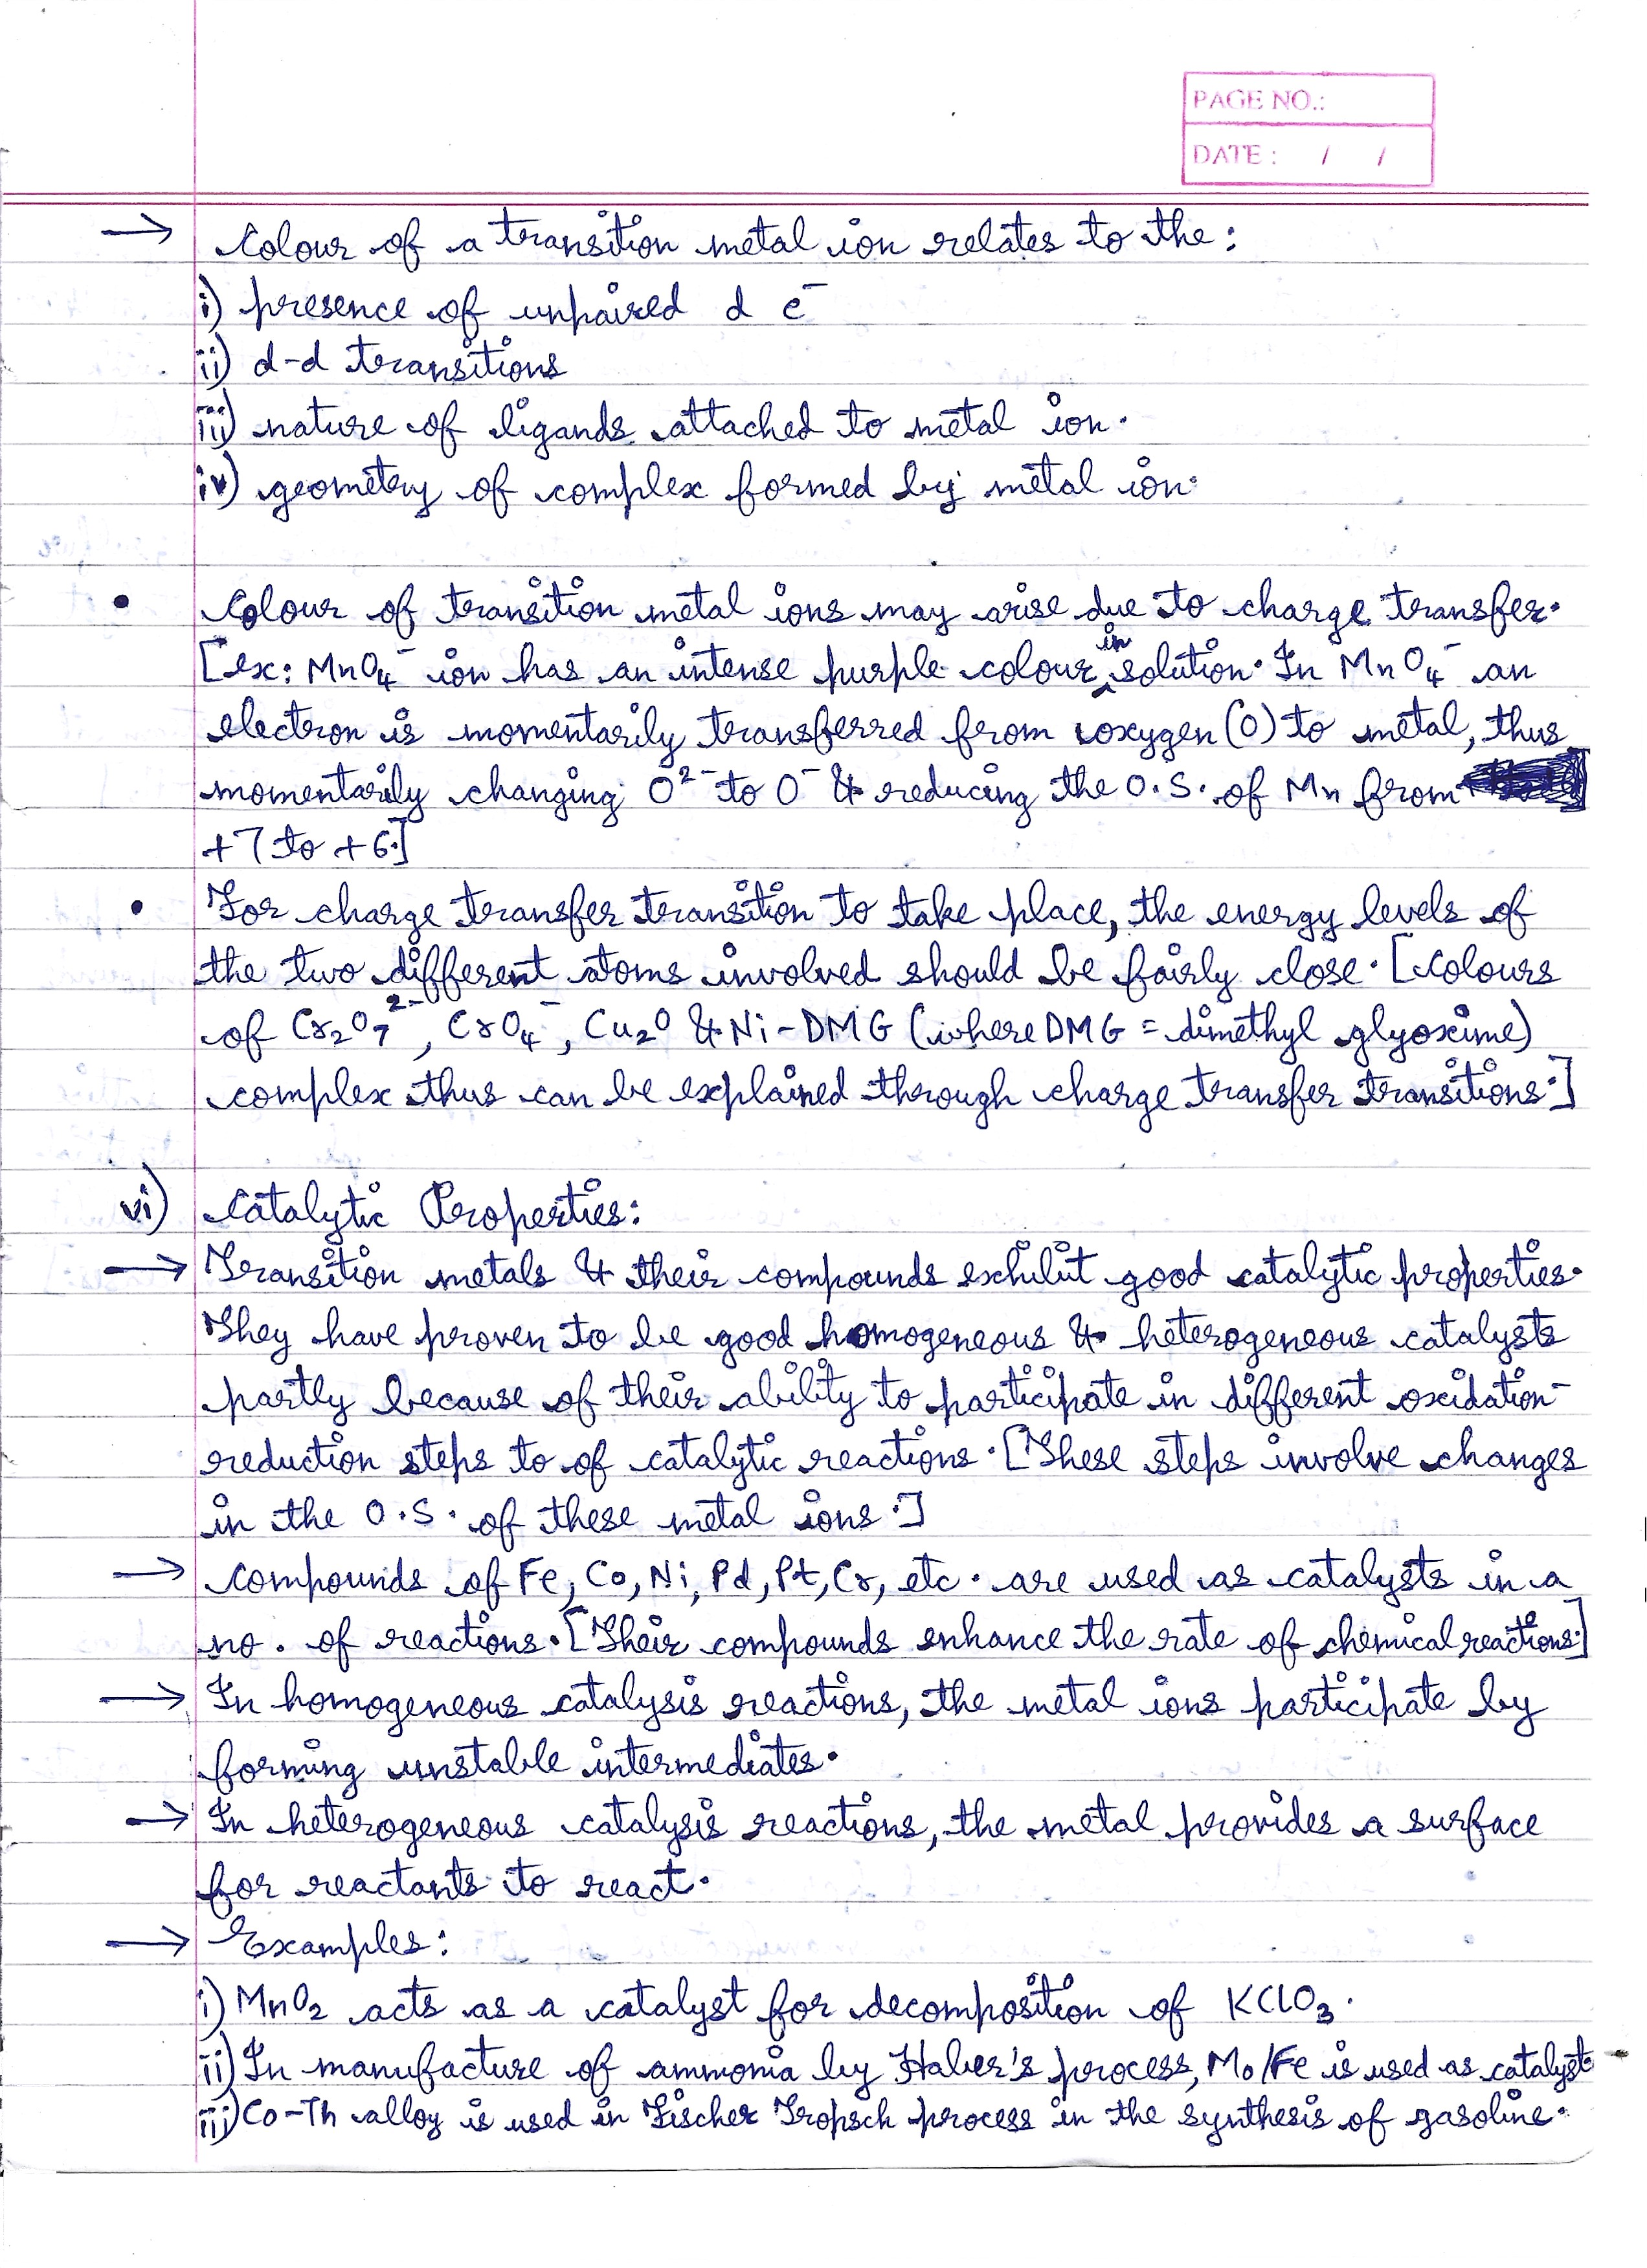 PAGE NO.:
DATE : / /
→ Colour of a transition metal ion relates to the:
i) presence of unpaired d e⁻
ii) d-d transitions
iii) nature of ligands attached to metal ion.
iv) geometry of complex formed by metal ion.
• Colour of transition metal ions may arise due to charge transfer.
[ex: MnO₄⁻ ion has an intense purple colour in solution. In MnO₄⁻ an
electron is momentarily transferred from oxygen (O) to metal, thus
momentarily changing O²⁻ to O⁻ & reducing the O.S. of Mn from
+7 to +6.]
• For charge transfer transition to take place, the energy levels of
the two different atoms involved should be fairly close. [Colours
of Cr₂O₇²⁻, CrO₄⁻, Cu₂O & Ni-DMG (where DMG = dimethyl glyoxime)
complex thus can be explained through charge transfer transitions.]
vi) Catalytic Properties:
→ Transition metals & their compounds exhibit good catalytic properties.
They have proven to be good homogeneous & heterogeneous catalysts
partly because of their ability to participate in different oxidation-
reduction steps to of catalytic reactions. [These steps involve changes
in the O.S. of these metal ions.]
→ Compounds of Fe, Co, Ni, Pd, Pt, Cr, etc. are used as catalysts in a
no. of reactions. [Their compounds enhance the rate of chemical reactions.]
→ In homogeneous catalysis reactions, the metal ions participate by
forming unstable intermediates.
→ In heterogeneous catalysis reactions, the metal provides a surface
for reactants to react.
→ Examples:
i) MnO₂ acts as a catalyst for decomposition of KClO₃.
ii) In manufacture of ammonia by Haber's process, Mo/Fe is used as catalyst.
iii) Co-Th alloy is used in Fischer Tropsch process in the synthesis of gasoline.